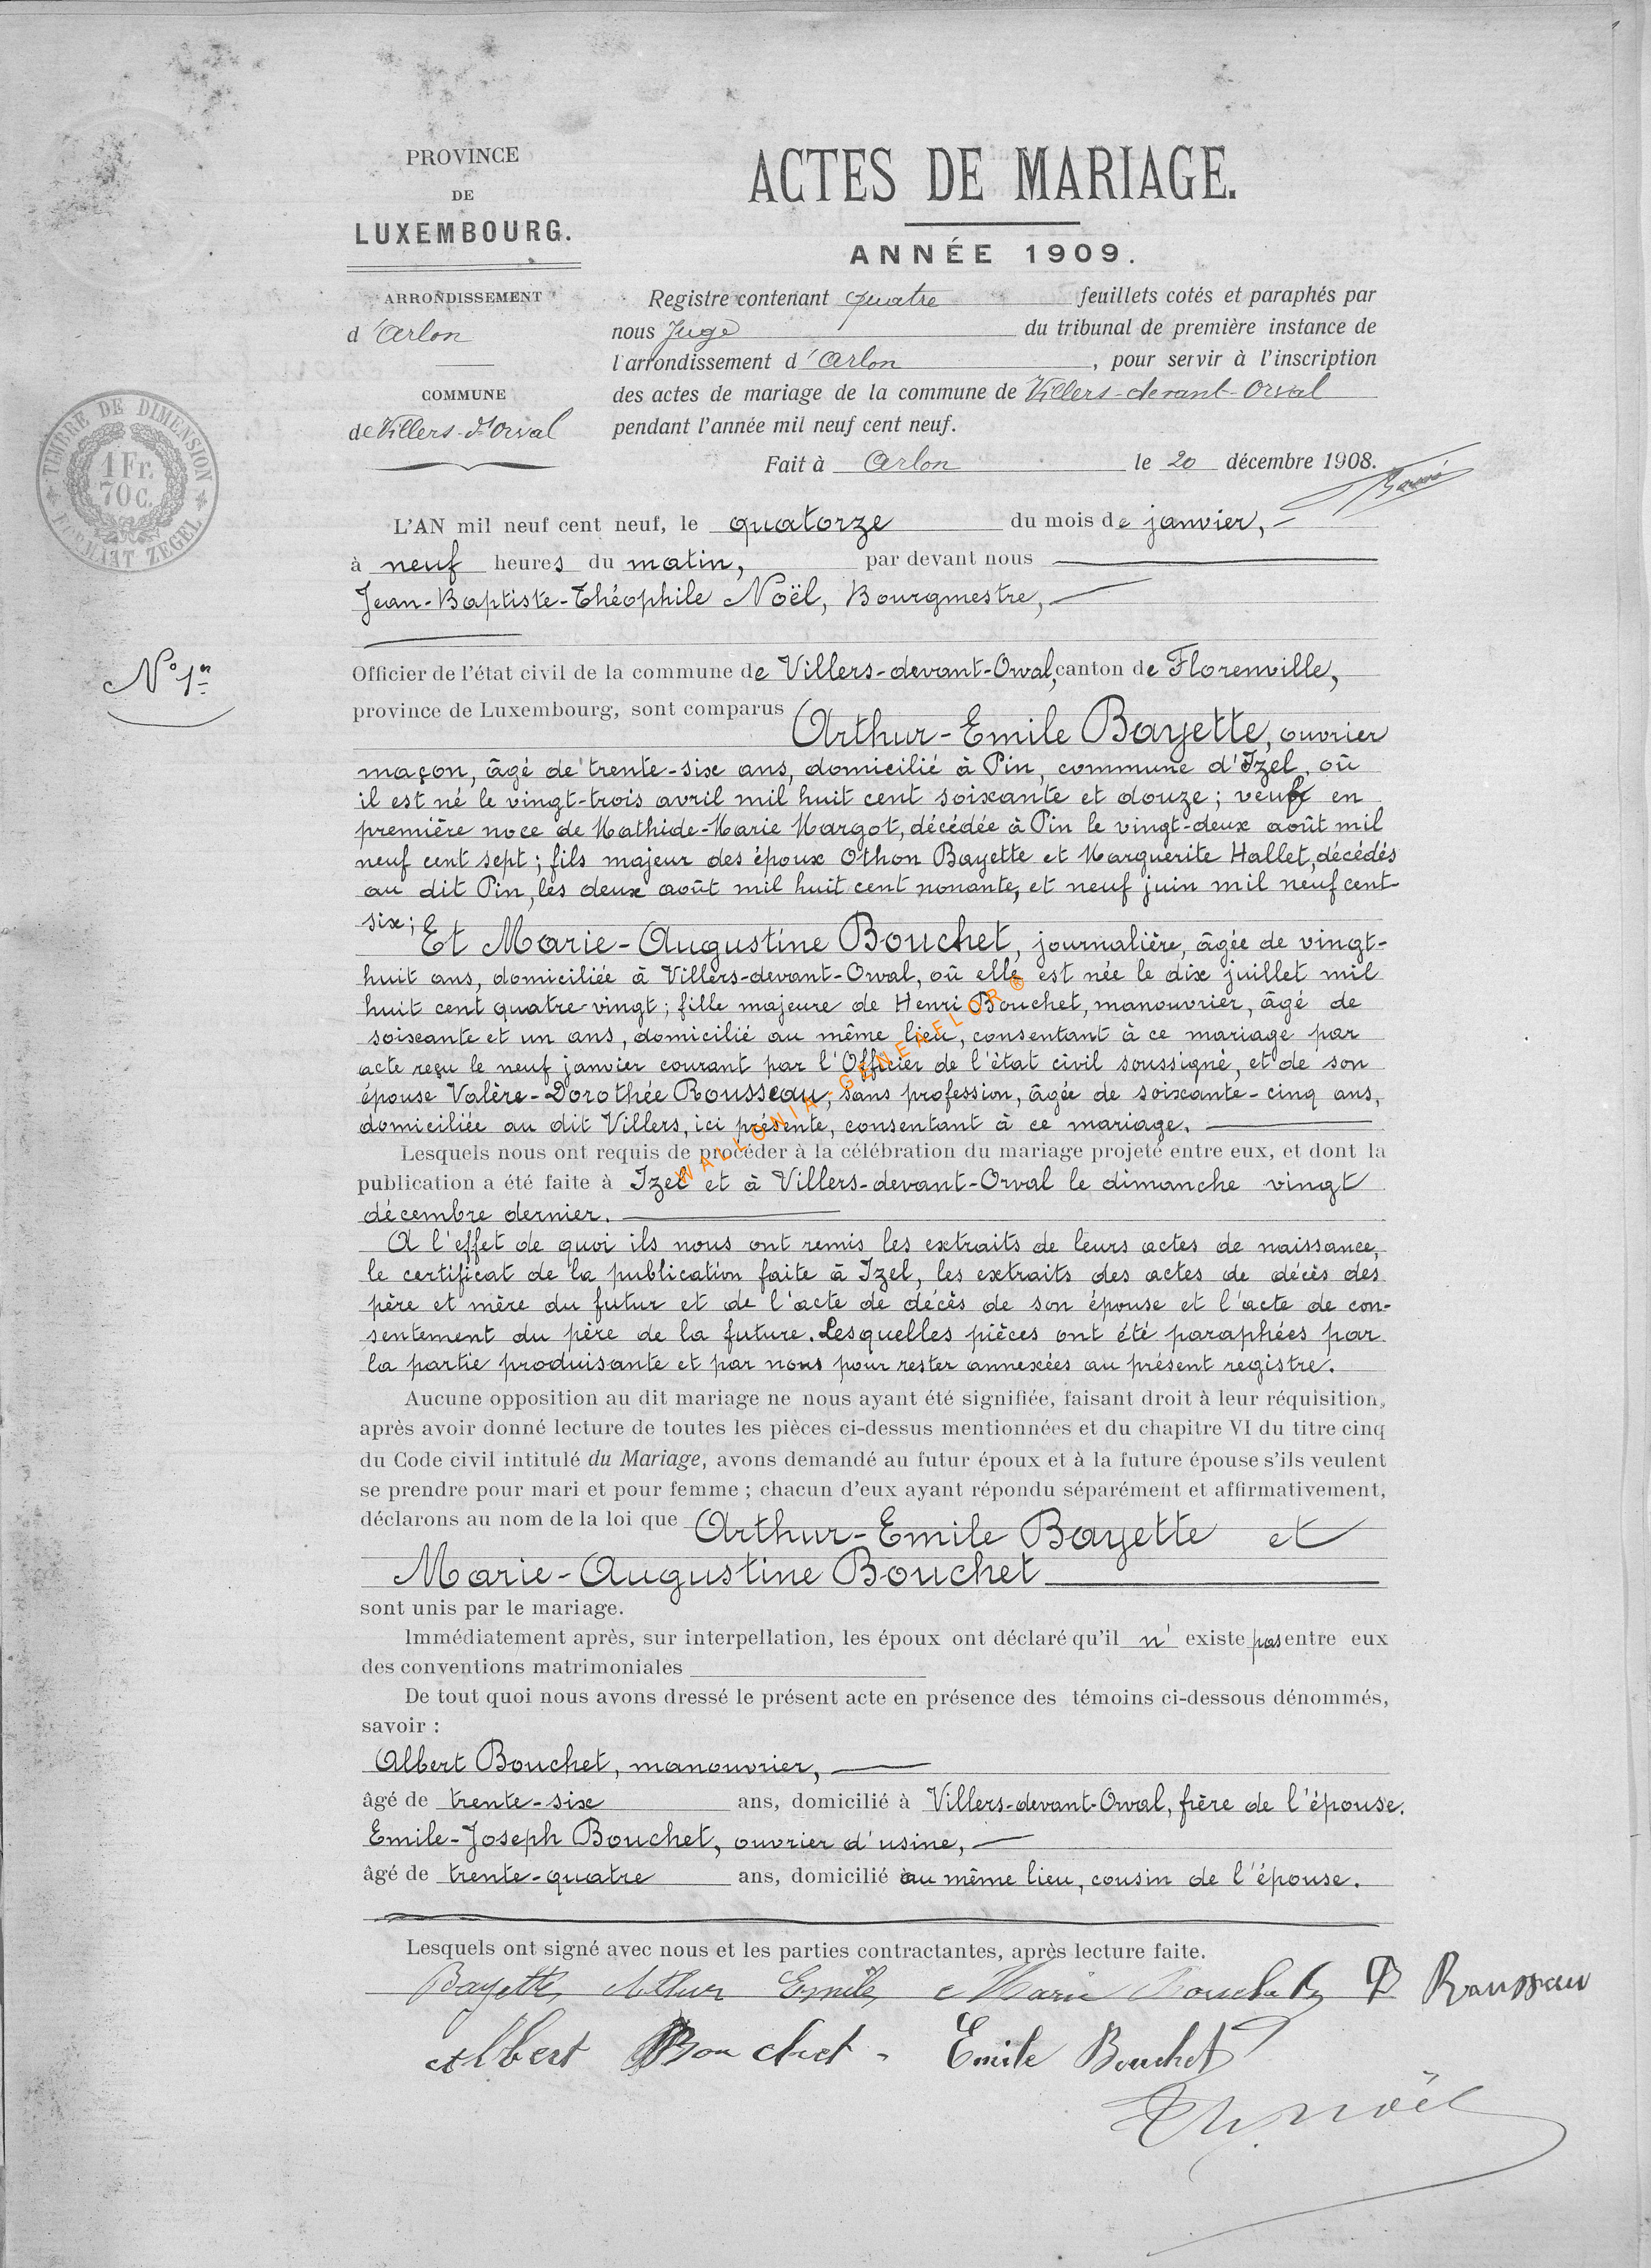 PROVINCE
DE
LUXEMBOURG.
ARRONDISSEMENT
d'Arlon
COMMUNE
de Villers-dt-Orval
TIMBRE DE DIMENSION
1 Fr.
70 C.
ZEGEL
ACTES DE MARIAGE.
ANNÉE 1909.
Registre contenant quatre feuillets cotés et paraphés par
nous Juge du tribunal de première instance de
l'arrondissement d'Arlon, pour servir à l'inscription
des actes de mariage de la commune de Villers-devant-Orval
pendant l'année mil neuf cent neuf.
Fait à Arlon le 20 décembre 1908.
L'AN mil neuf cent neuf, le quatorze du mois de janvier,
à neuf heures du matin, par devant nous
Jean-Baptiste-Théophile Noël, Bourgmestre,
N° 1er
Officier de l'état civil de la commune de Villers-devant-Orval, canton de Florenville,
province de Luxembourg, sont comparus Arthur-Emile Bayette, ouvrier
maçon, âgé de trente-six ans, domicilié à Pin, commune d'Izel, où
il est né le vingt-trois avril mil huit cent soixante et douze; veuf en
première noce de Mathide-Marie Margot, décédée à Pin le vingt-deux août mil
neuf cent sept; fils majeur des époux Othon Bayette et Marguerite Hallet, décédés
au dit Pin, les deux août mil huit cent nonante, et neuf juin mil neuf cent-
six;
Et Marie-Augustine Bouchet, journalière, âgée de vingt-
huit ans, domiciliée à Villers-devant-Orval, où elle est née le dix juillet mil
huit cent quatre-vingt; fille majeure de Henri Bouchet, manouvrier, âgé de
soixante et un ans, domicilié au même lieu, consentant à ce mariage par
acte reçu le neuf janvier courant par l'Officier de l'état civil soussigné, et de son
épouse Valère-Dorothée Rousseau, sans profession, âgée de soixante-cinq ans,
domiciliée au dit Villers, ici présente, consentant à ce mariage.
WALLONIA-GENEAFLOR ®
Lesquels nous ont requis de procéder à la célébration du mariage projeté entre eux, et dont la
publication a été faite à Izel et à Villers-devant-Orval le dimanche vingt
décembre dernier.
A l'effet de quoi ils nous ont remis les extraits de leurs actes de naissance,
le certificat de la publication faite à Izel, les extraits des actes de décès des
père et mère du futur et de l'acte de décès de son épouse et l'acte de con-
sentement du père de la future. Lesquelles pièces ont été paraphées par
la partie produisante et par nous pour rester annexées au présent registre.
Aucune opposition au dit mariage ne nous ayant été signifiée, faisant droit à leur réquisition,
après avoir donné lecture de toutes les pièces ci-dessus mentionnées et du chapitre VI du titre cinq
du Code civil intitulé du Mariage, avons demandé au futur époux et à la future épouse s'ils veulent
se prendre pour mari et pour femme ; chacun d'eux ayant répondu séparément et affirmativement,
déclarons au nom de la loi que Arthur-Emile Bayette et
Marie-Augustine Bouchet
sont unis par le mariage.
Immédiatement après, sur interpellation, les époux ont déclaré qu'il n' existe pas entre eux
des conventions matrimoniales
De tout quoi nous avons dressé le présent acte en présence des témoins ci-dessous dénommés,
savoir :
Albert Bouchet, manouvrier,
âgé de trente-six ans, domicilié à Villers-devant-Orval, frère de l'épouse.
Emile-Joseph Bouchet, ouvrier d'usine,
âgé de trente-quatre ans, domicilié au même lieu, cousin de l'épouse.
Lesquels ont signé avec nous et les parties contractantes, après lecture faite.
Bayette Arthur Emile Marie Bouchet D Rousseau
Albert Bouchet Emile Bouchet
Th. Noël